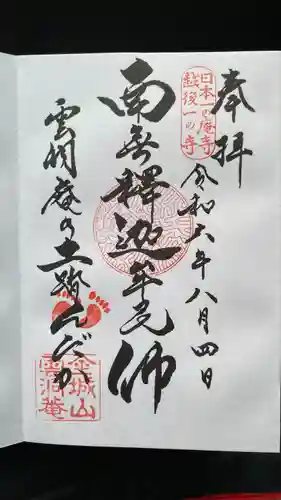 奉拝
日本一の庵寺
越後一の寺
令和六年八月四日
南無釋迦牟尼佛
雲洞庵の土踏んだか
金城山
雲洞庵